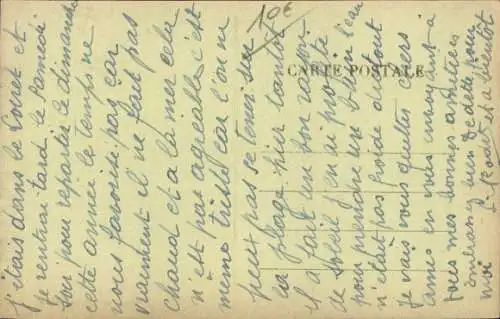 10€
CARTE POSTALE
j'étais dans le Loiret et
je rentrai tard le Samedi
pour repartir le dimanche
cette année le temps ne
nous favorise pas car
vraiment il ne fait pas
chaud et à la mer cela
n'est pas agréable c'est
même triste car l'on ne
peut pas se tenir sur
la plage hier tantôt
il a fait un bon rayon
de soleil j'en ai profité
pour prendre un bain l'eau
n'était pas froide surtout
je vais vous quitter chers
amis en vous envoyant à
tous mes bonnes amitiés
bien pour
moi et à bientôt